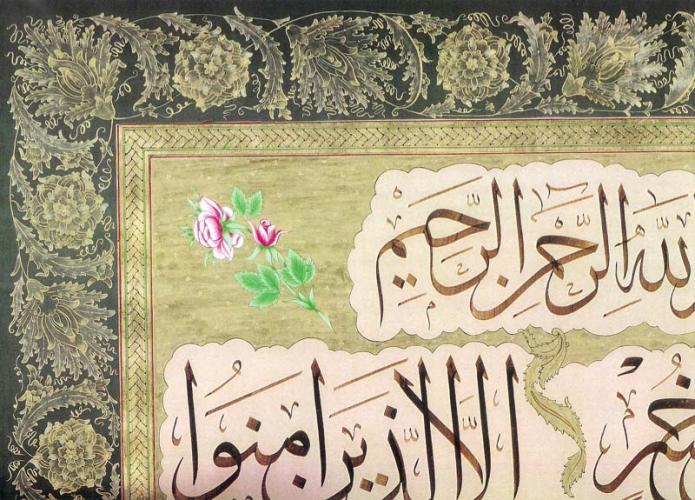 لله الرحمن الرحيم
خسر الا الذين امنوا